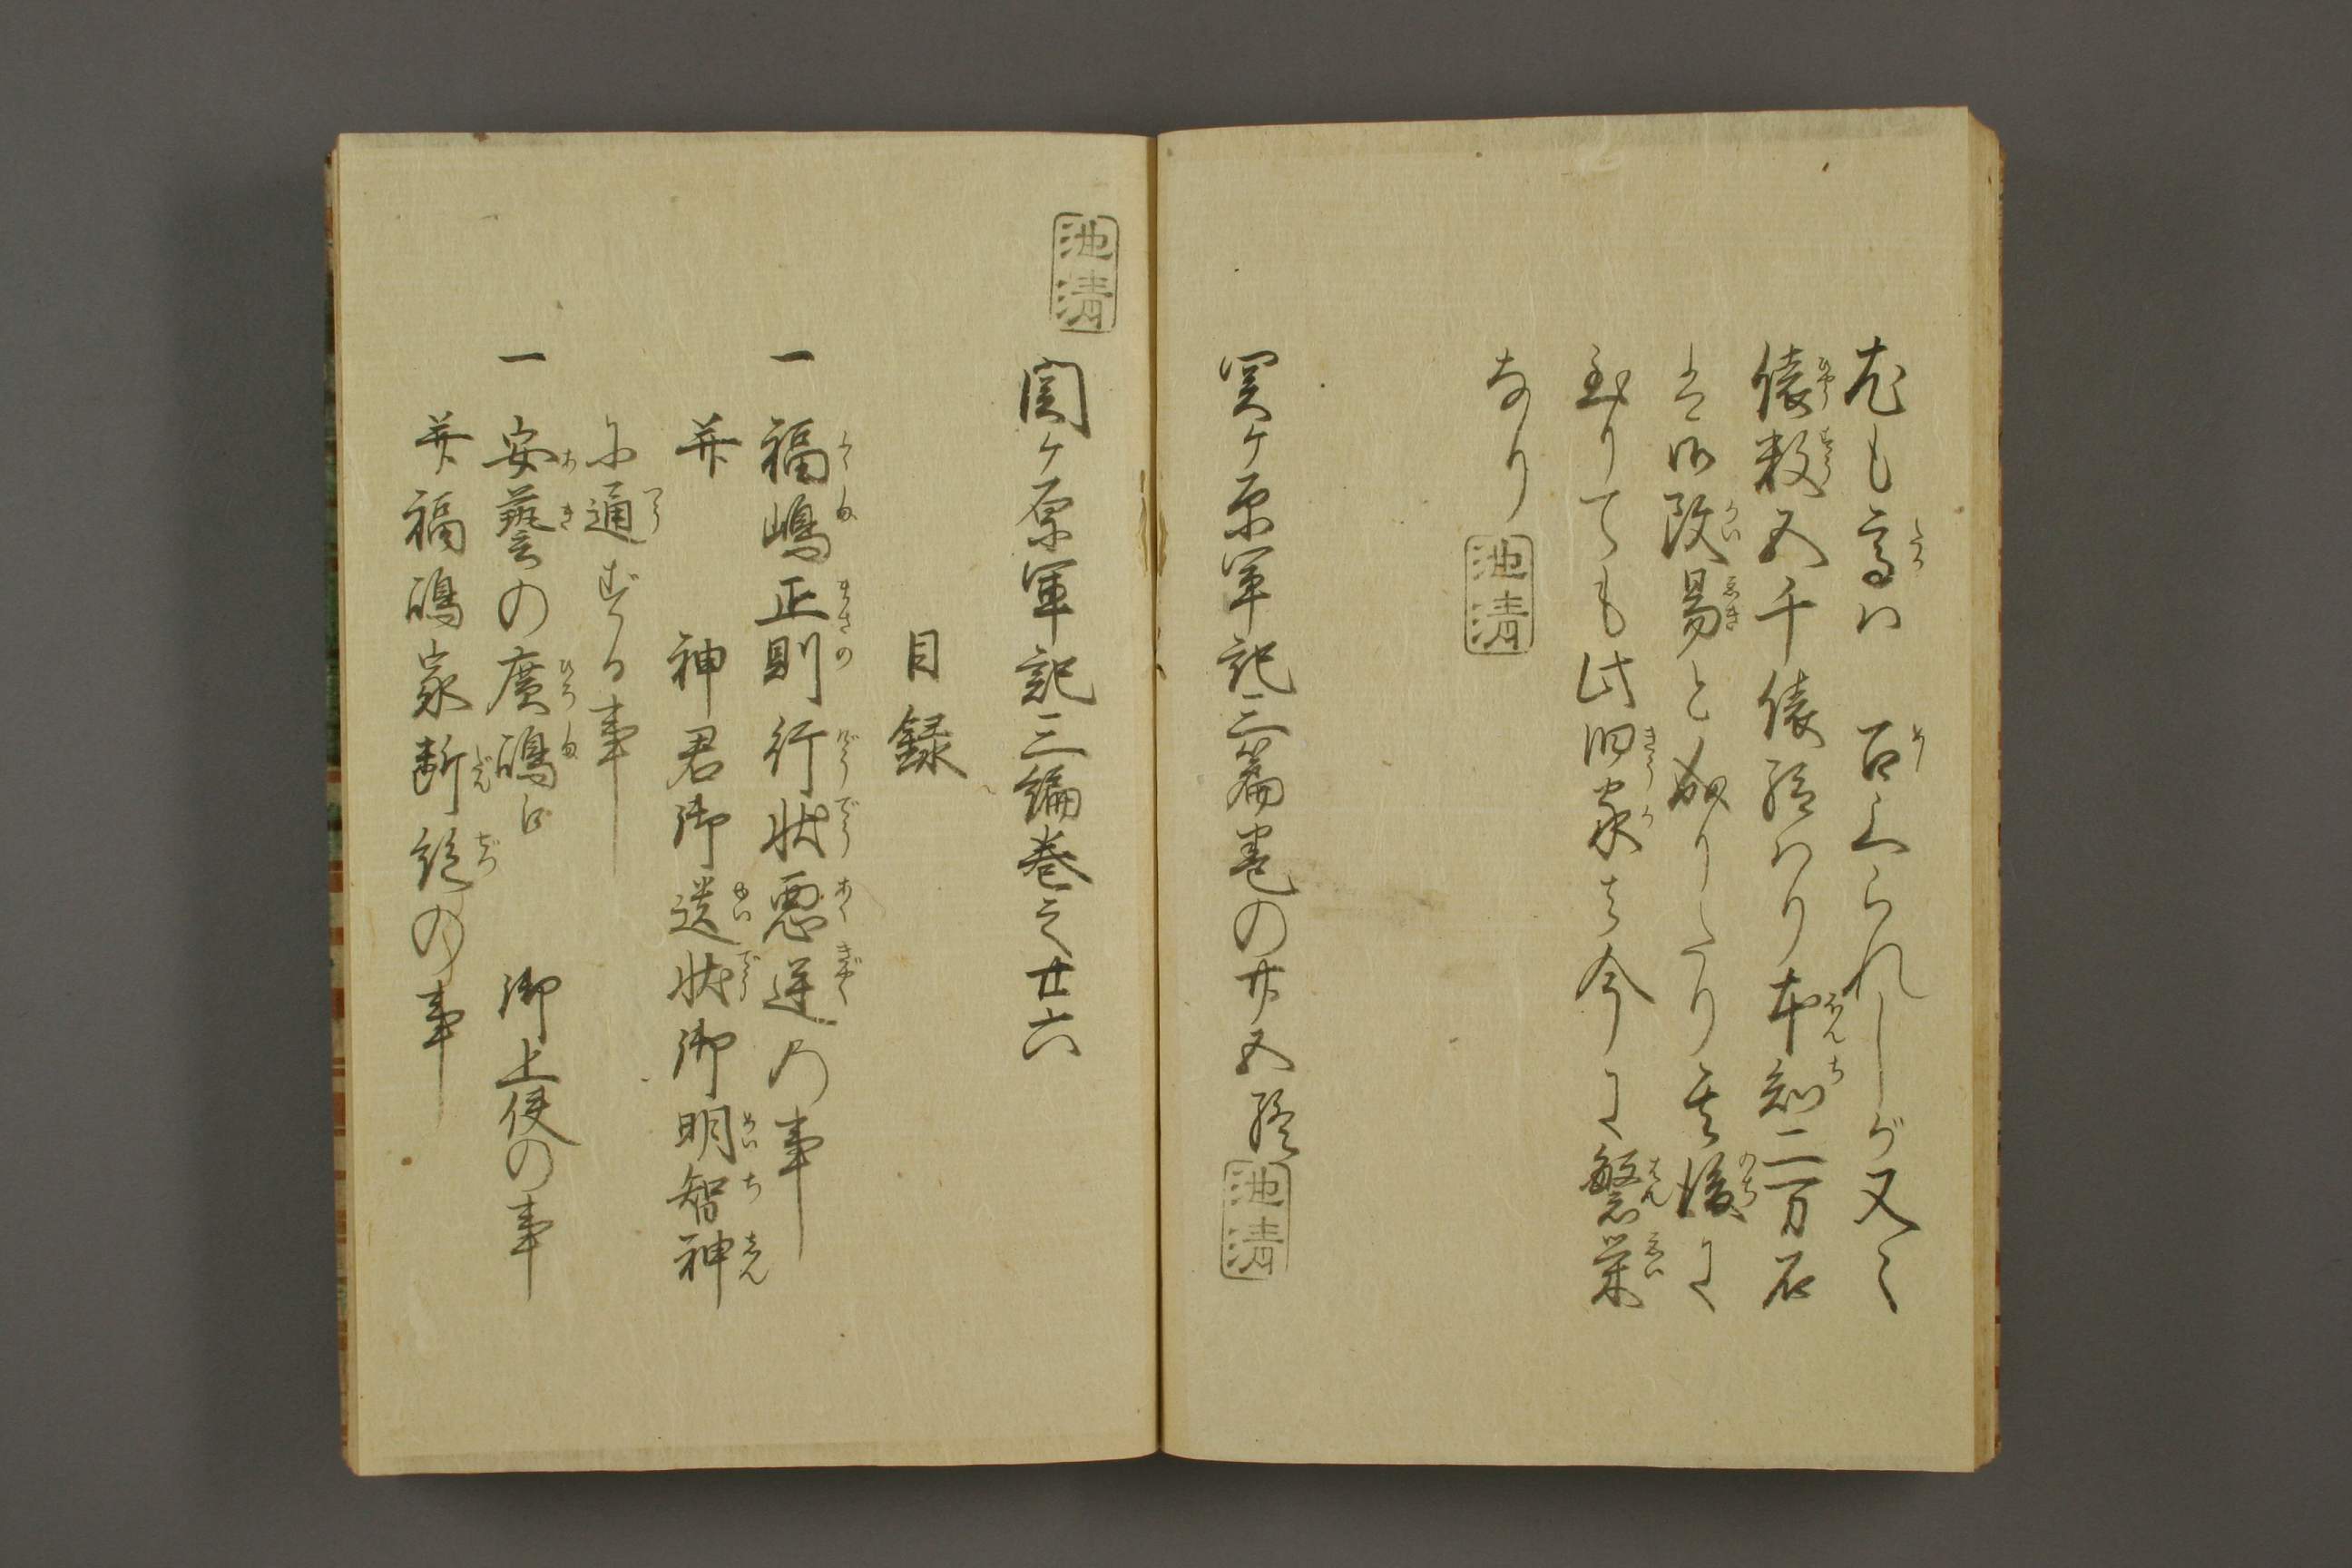 尤も高ハ　召上られしが又々
俵数五千俵給ハり本知二万石
は御改易と成りたり其後に
至りても此旧家は今に繁栄
なり
池清
関ケ原軍記三篇巻の廿五終
池清
池清
関ケ原軍記三編巻之廿六
目録
一　福嶋正則行状悪逆の事
并　神君御遺状御明智神
に通ずる事
一　安藝の廣嶋に　御上使の事
并福嶋家断絶の事